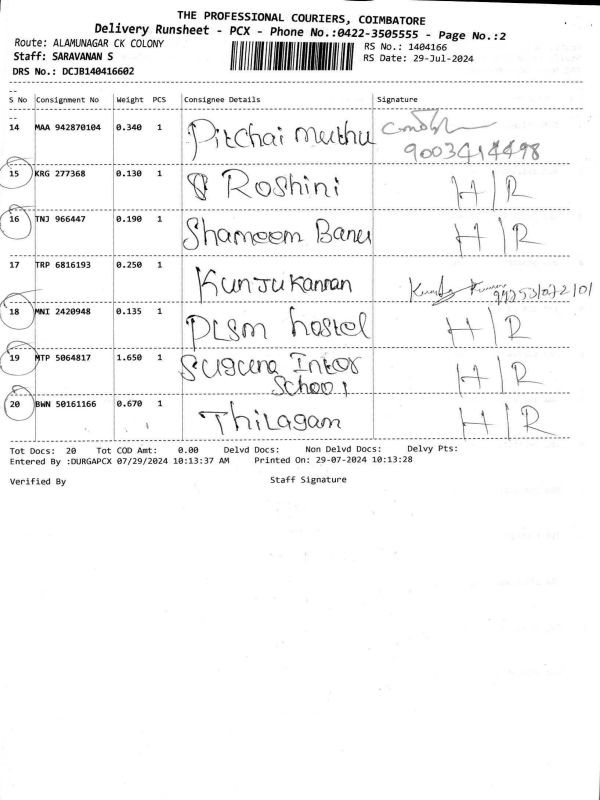 THE PROFESSIONAL COURIERS, COIMBATORE
Delivery Runsheet - PCX - Phone No.:0422-3505555 - Page No.:2
Route: ALAMUNAGAR CK COLONY RS No.: 1404166
Staff: SARAVANAN S RS Date: 29-Jul-2024
DRS No.: DCJB140416602
S No Consignment No Weight PCS Consignee Details Signature
14 MAA 942870104 0.340 1 Pitchai Muthu
9003414498
15 KRG 277368 0.130 1 Roshini H/R
16 TNJ 966447 0.190 1 Shameem Banu H/R
17 TRP 6816193 0.250 1 Kunjukannan
18 MNI 2420948 0.135 1 PLSM hostel H/R
19 MTP 5064817 1.650 1 Suguna Inter H/R
School
20 BWN 50161166 0.670 1 Thilagam H/R
Tot Docs: 20 Tot COD Amt: 0.00 Delvd Docs: Non Delvd Docs: Delvy Pts:
Entered By :DURGAPCX 07/29/2024 10:13:37 AM Printed On: 29-07-2024 10:13:28
Verified By Staff Signature